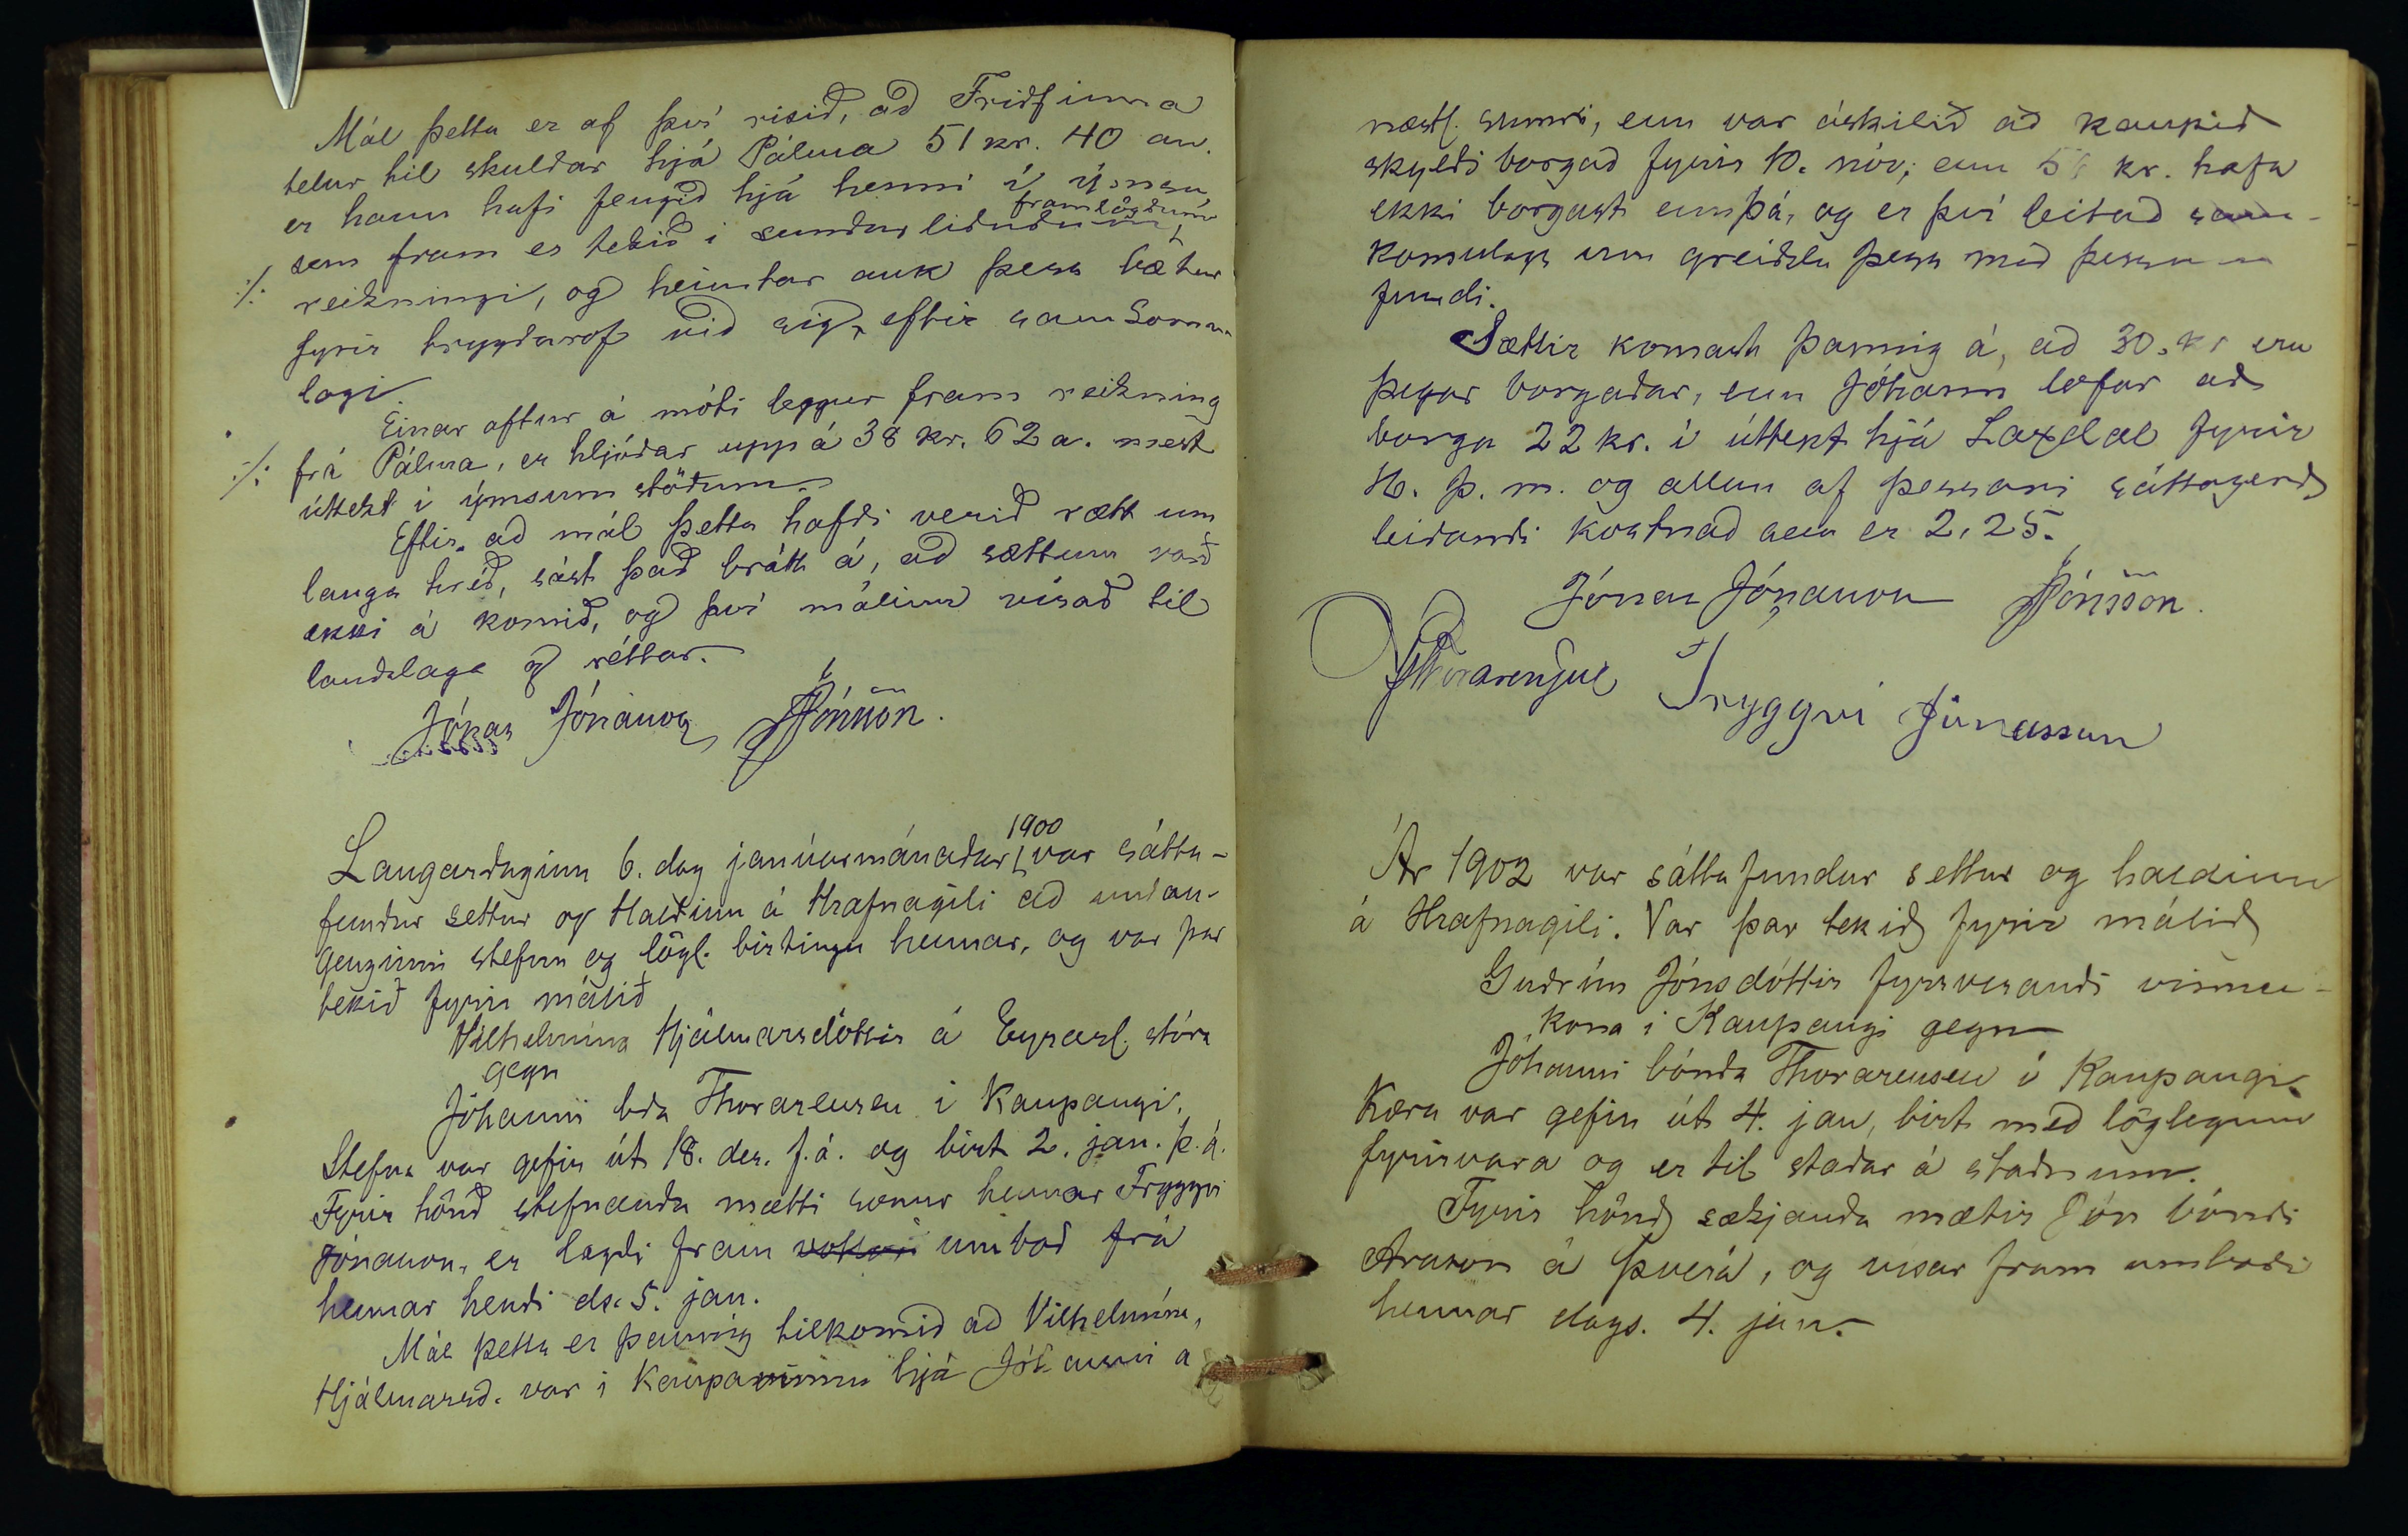 Mál þetta er af því risið, að Friðfinna
telur til skuldar hjá Pálma 51 kr. 40 au.
er hann hafi fengið hjá henni í ýmsu,
framlögðum
sem fram er tekið i sundurliðuðum
./. reikningi, og heimtar auk þess bætur
fyrir trygðarof við sig, eftir samkomu
lagi
Einar aftur á móti leggur fram reikning
./. frá Pálma, er hljóðar uppá 38 kr. 62 a. mest
úttekt í ýmsum stöðum.
Eftir að mál þetta hafði verið rætt um
langa hríð, sást það brátt á, að sættum varð
ekki á komið, og því málinu vísað til
landslaga og réttar.
Jónas Jónasson JJónsson.
1900
Laugardaginn 6. dag janúarmánaðar var sátta-
fundur settur og Haldinn á Hrafnagili að undan-
genginni stefnu og lögl. birtingu hennar, og var þar
tekið fyrir málið
Vilhelmína Hjálmarsdóttir á Eyrarl. stóra
gegn
Jóhanni bda Thorarensen i Kaupangi.
Stefna var gefin út 18. des. f. á. og birt 2. jan. þ. á.
Fyrir hönd stefnanda mætti sonur hennar Tryggvi
Jónasson, er lagði fram umboð frá
hennar hendi ds. 5. jan.
Mál þetta er þannig tilkomið að Vilhelmína,
Hjálmarsd. var i Kaupavinnu hjá Jóhanni a
næstl. sumri, enn var áskilið að kaupið
skyldi borgað fyrir 10. nóv; enn kr. hafa
ekki borgast ennþá, og er því leitað sam-
komulags um greiðslu þess með þessum
fundi.
Sættir komast þannig á, að 30. kr eru
þegar borgaðar, enn Jóhann lofar að
borga 22 kr. i úttekt hjá Laxdal fyrir
16. þ. m. og allan af þessari sáttagerð
leiðandi kostnað sem er 2,25.
Jónas Jónasson JJónsson.
JThorarensen Tryggvi Jónasson
Ár 1902 var sáttafundur settur og haldinn
á Hrafnagili. Var þar tekið fyrir málið
Guðrún Jónsdóttir fyrverandi vinnu-
kona i Kaupangi gegn
Jóhanni bónda Thorarensen í Kaupangi.
Kæra var gefin út 4. jan, birt með löglegum
fyrirvara og er til staðar á staðnum.
Fyrir hönd sækjanda mætir Jón bóndi
Arason á Þverá, og vísar fram umboði
hennar dags. 4. jan.